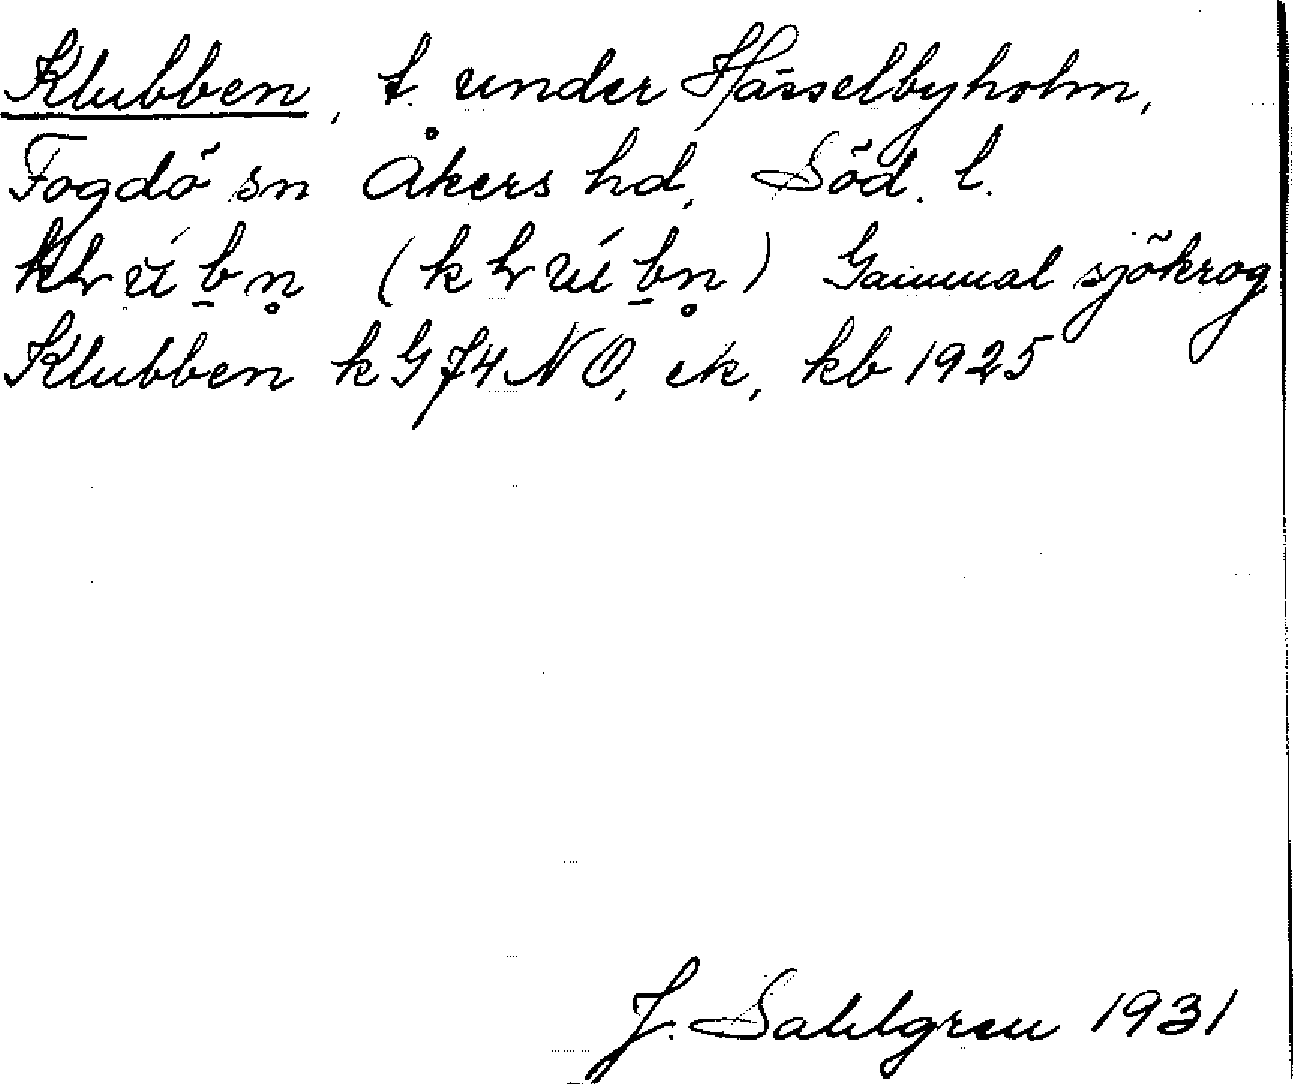 Klubben, t. under Hässelbyholm,
Fogdö sn Åkers hd, Söd. l.
Gammal sjökrog
Klubben k G 74 NO, ek, kb 1925
J. Sahlgren 1931